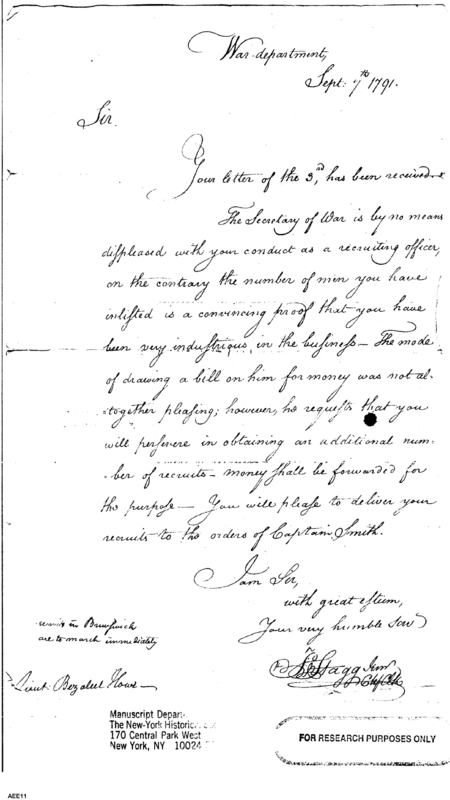 War department,
Sept: 7th 1791.
Sir.
Your letter of the 3rd, has been received
The Secretary of War is by no means
displeased with your conduct as a recruiting officer,
on the contrary the number of men you have
inlisted is a convincing proof that you have
been very industrious, in the business — The mode
of drawing a bill on him for money was not al-
-together pleasing; however, he requests that you
will persevere in obtaining an additional num-
-ber of recruits — money shall be forwarded for
the purpose — You will please to deliver your
recruits to the orders of Captain Smith.
I am Sir,
with great esteem,
Your very humble Serv
in Brunswick
are to march immediately
Stagg Junr
Lieut. Bezaleel Howe —
Manuscript Depart
The New-York Historic
170 Central Park West
New York, NY 10024
FOR RESEARCH PURPOSES ONLY
AEE11